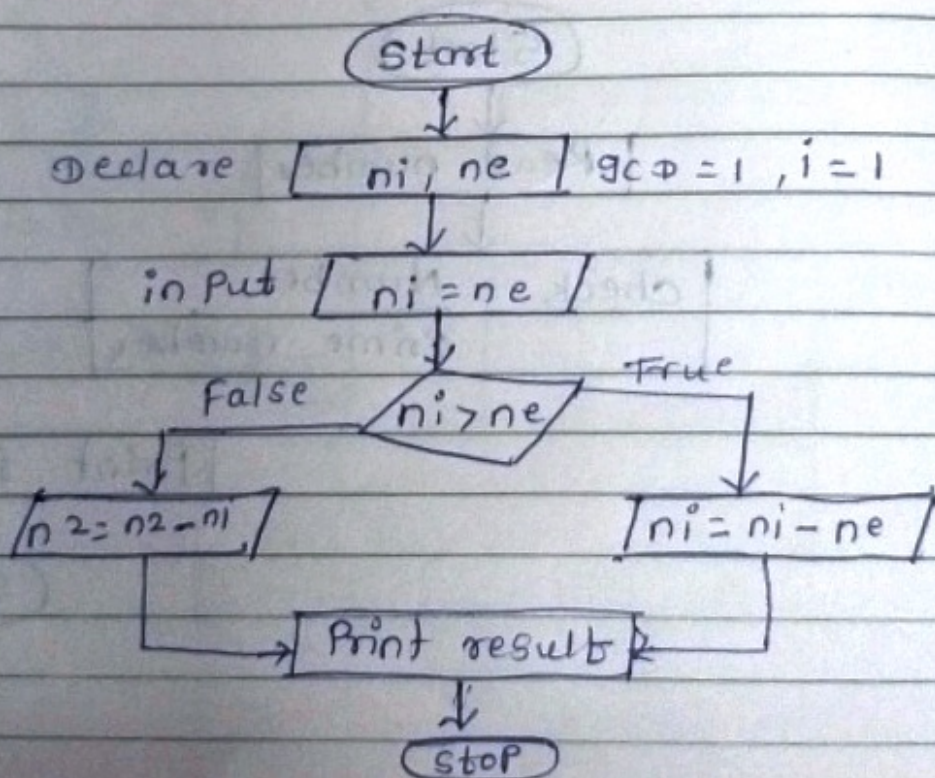 Start
Declare ni, ne gcD = 1, i = 1
input ni = ne
False ni > ne True
n2 = n2 - ni ni = ni - ne
Print result
Stop